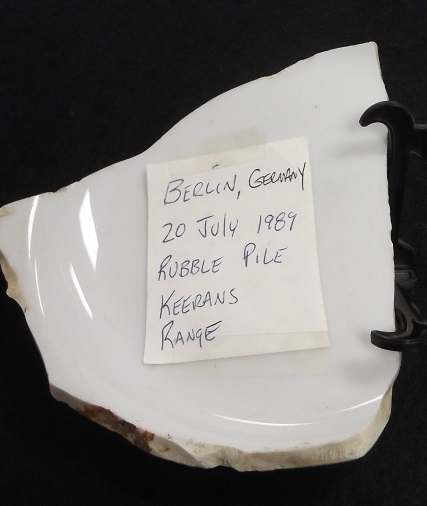 BERLIN, GERMANY
20 JULY 1989
RUBBLE PILE
KEERANS
RANGE